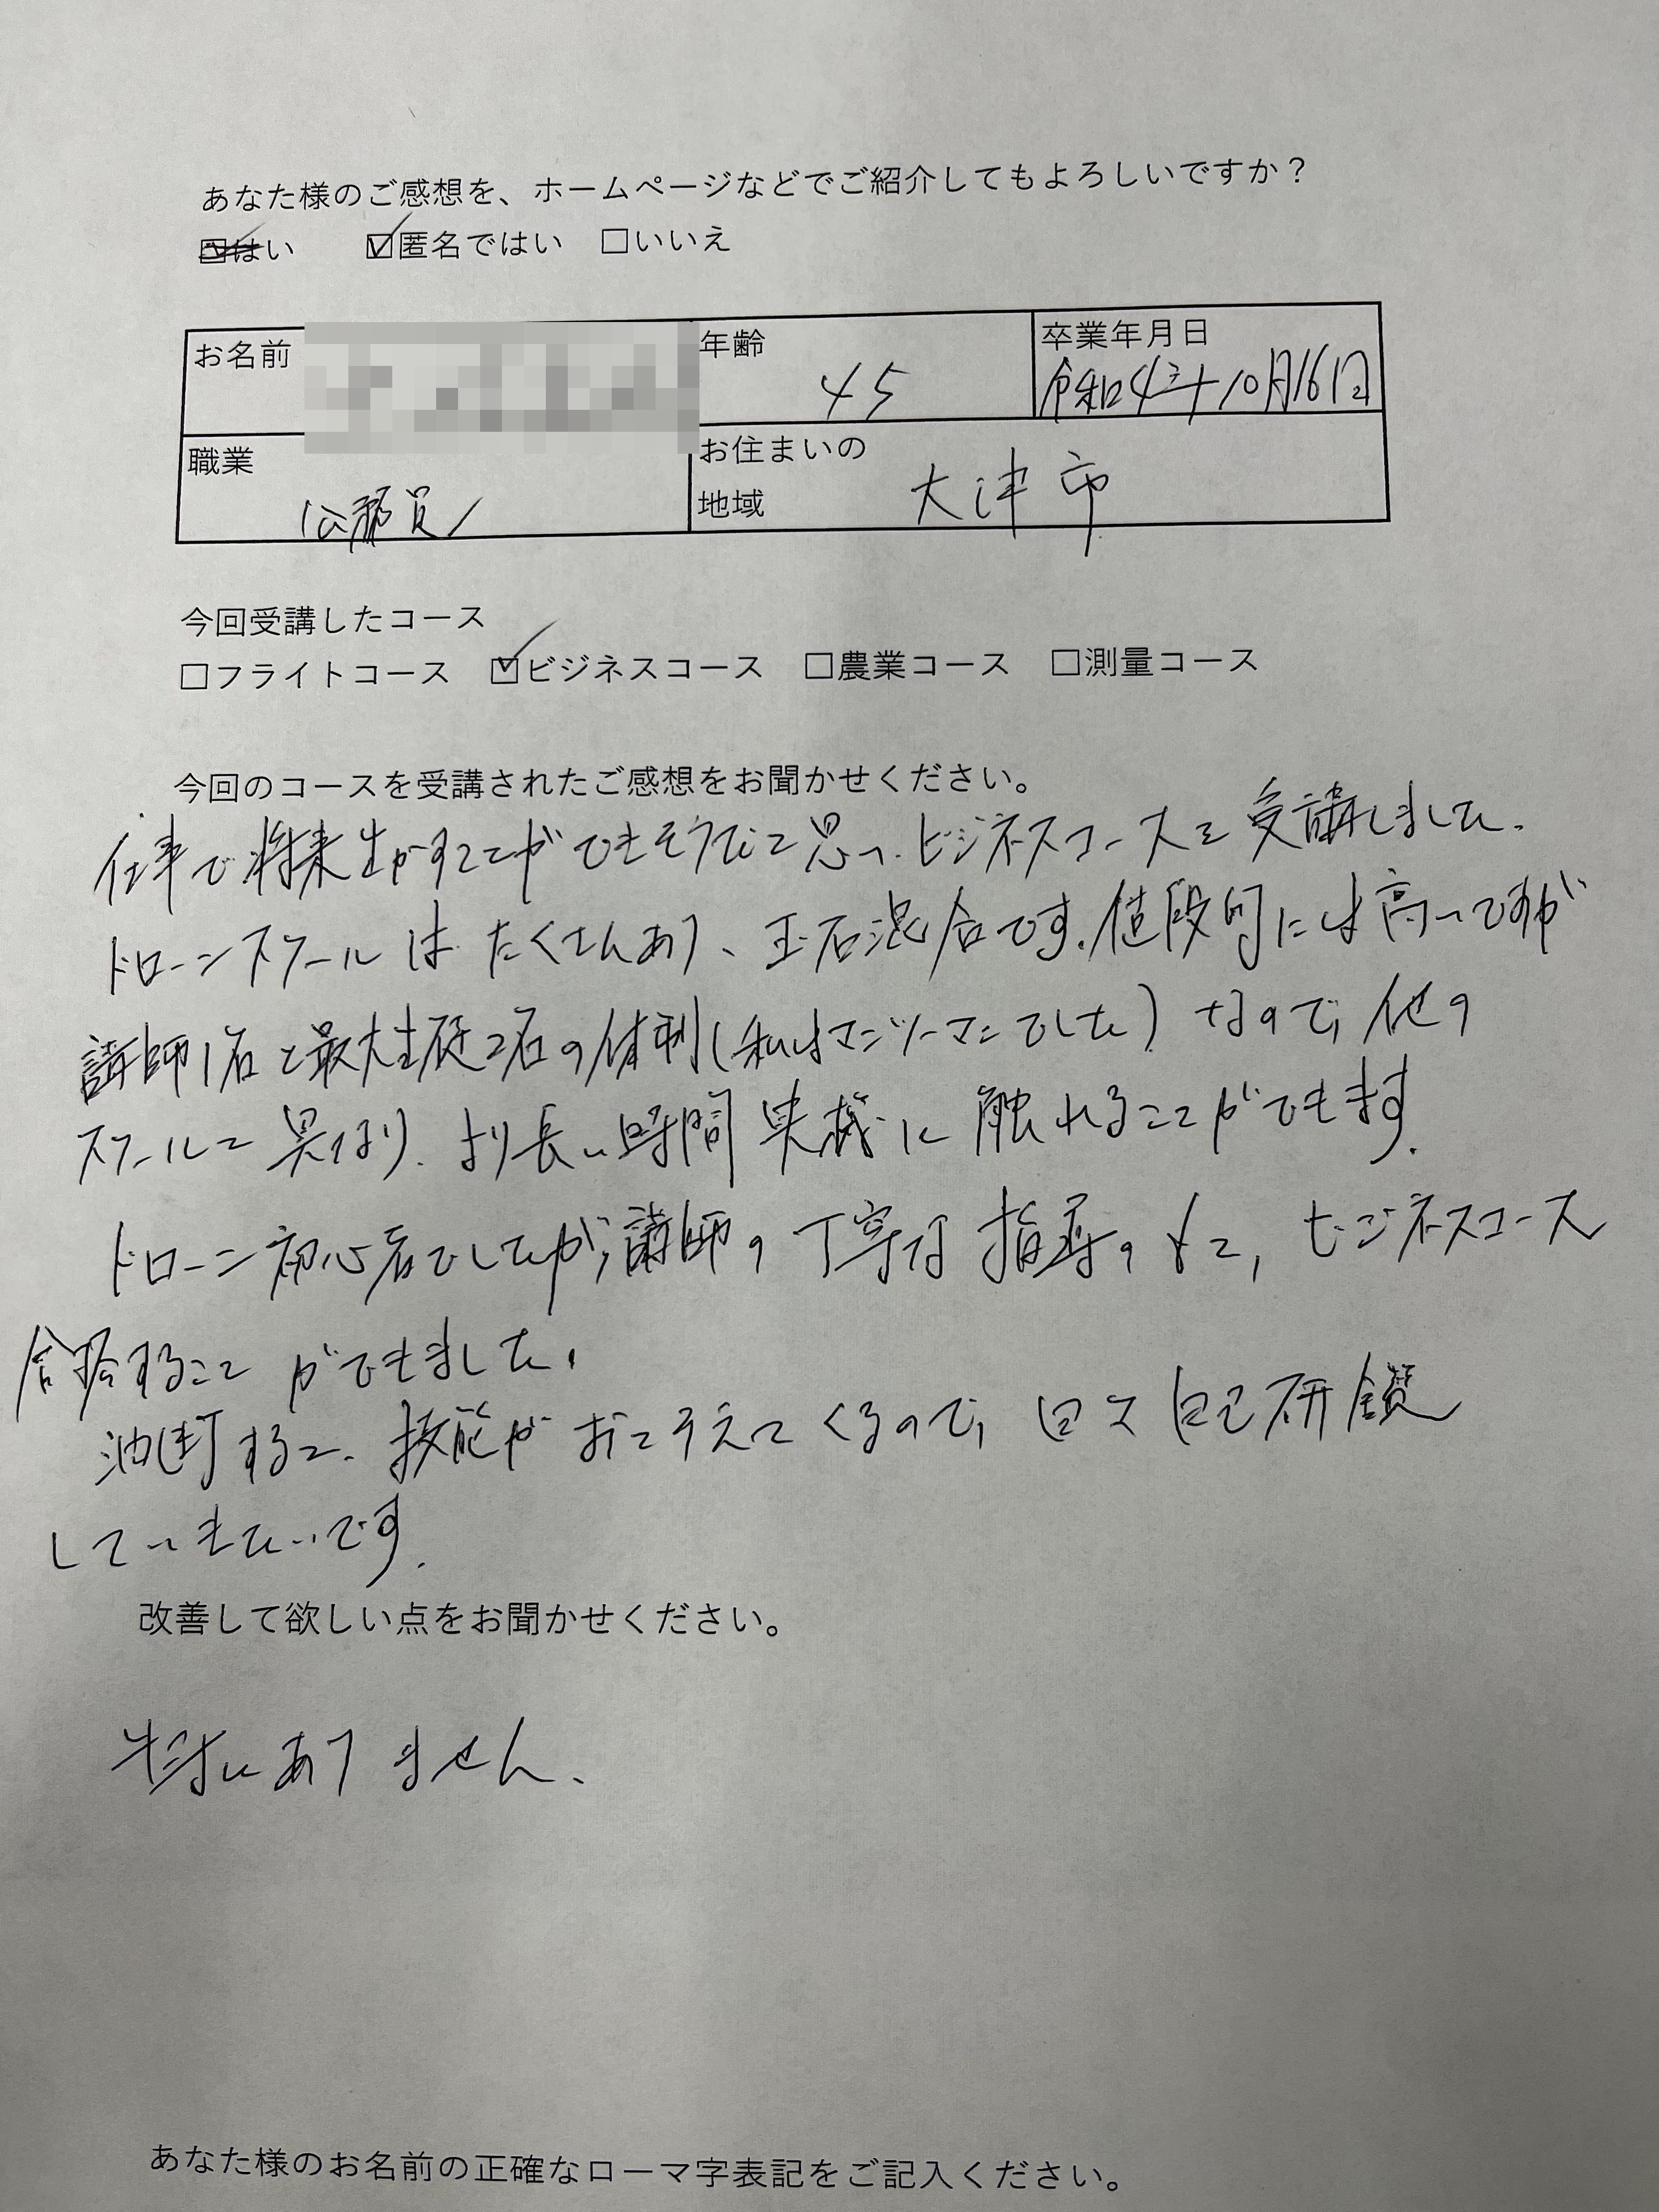 あなた様のご感想を、ホームページなどでご紹介してもよろしいですか？
☑はい ☑匿名ではい □いいえ
お名前 年齢 45 卒業年月日 令和4年10月16日
職業 公務員 お住まいの地域 大津市
今回受講したコース
□フライトコース ☑ビジネスコース □農業コース □測量コース
今回のコースを受講されたご感想をお聞かせください。
仕事で将来生かすことができそうだと思い、ビジネスコースを受講しました。
ドローンスクールはたくさんあり、玉石混合です。値段的には高いですが
講師1名と最大生徒2名の体制(私はマンツーマンでした)なので、他の
スクールと異なり、より長い時間実機に触れることができます。
ドローン初心者でしたが、講師の丁寧な指導のもと、ビジネスコース
合格することができました。
油断すると、技能がおとろえてくるので、日々自己研鑽
していきたいです。
改善して欲しい点をお聞かせください。
特にありません。
あなた様のお名前の正確なローマ字表記をご記入ください。